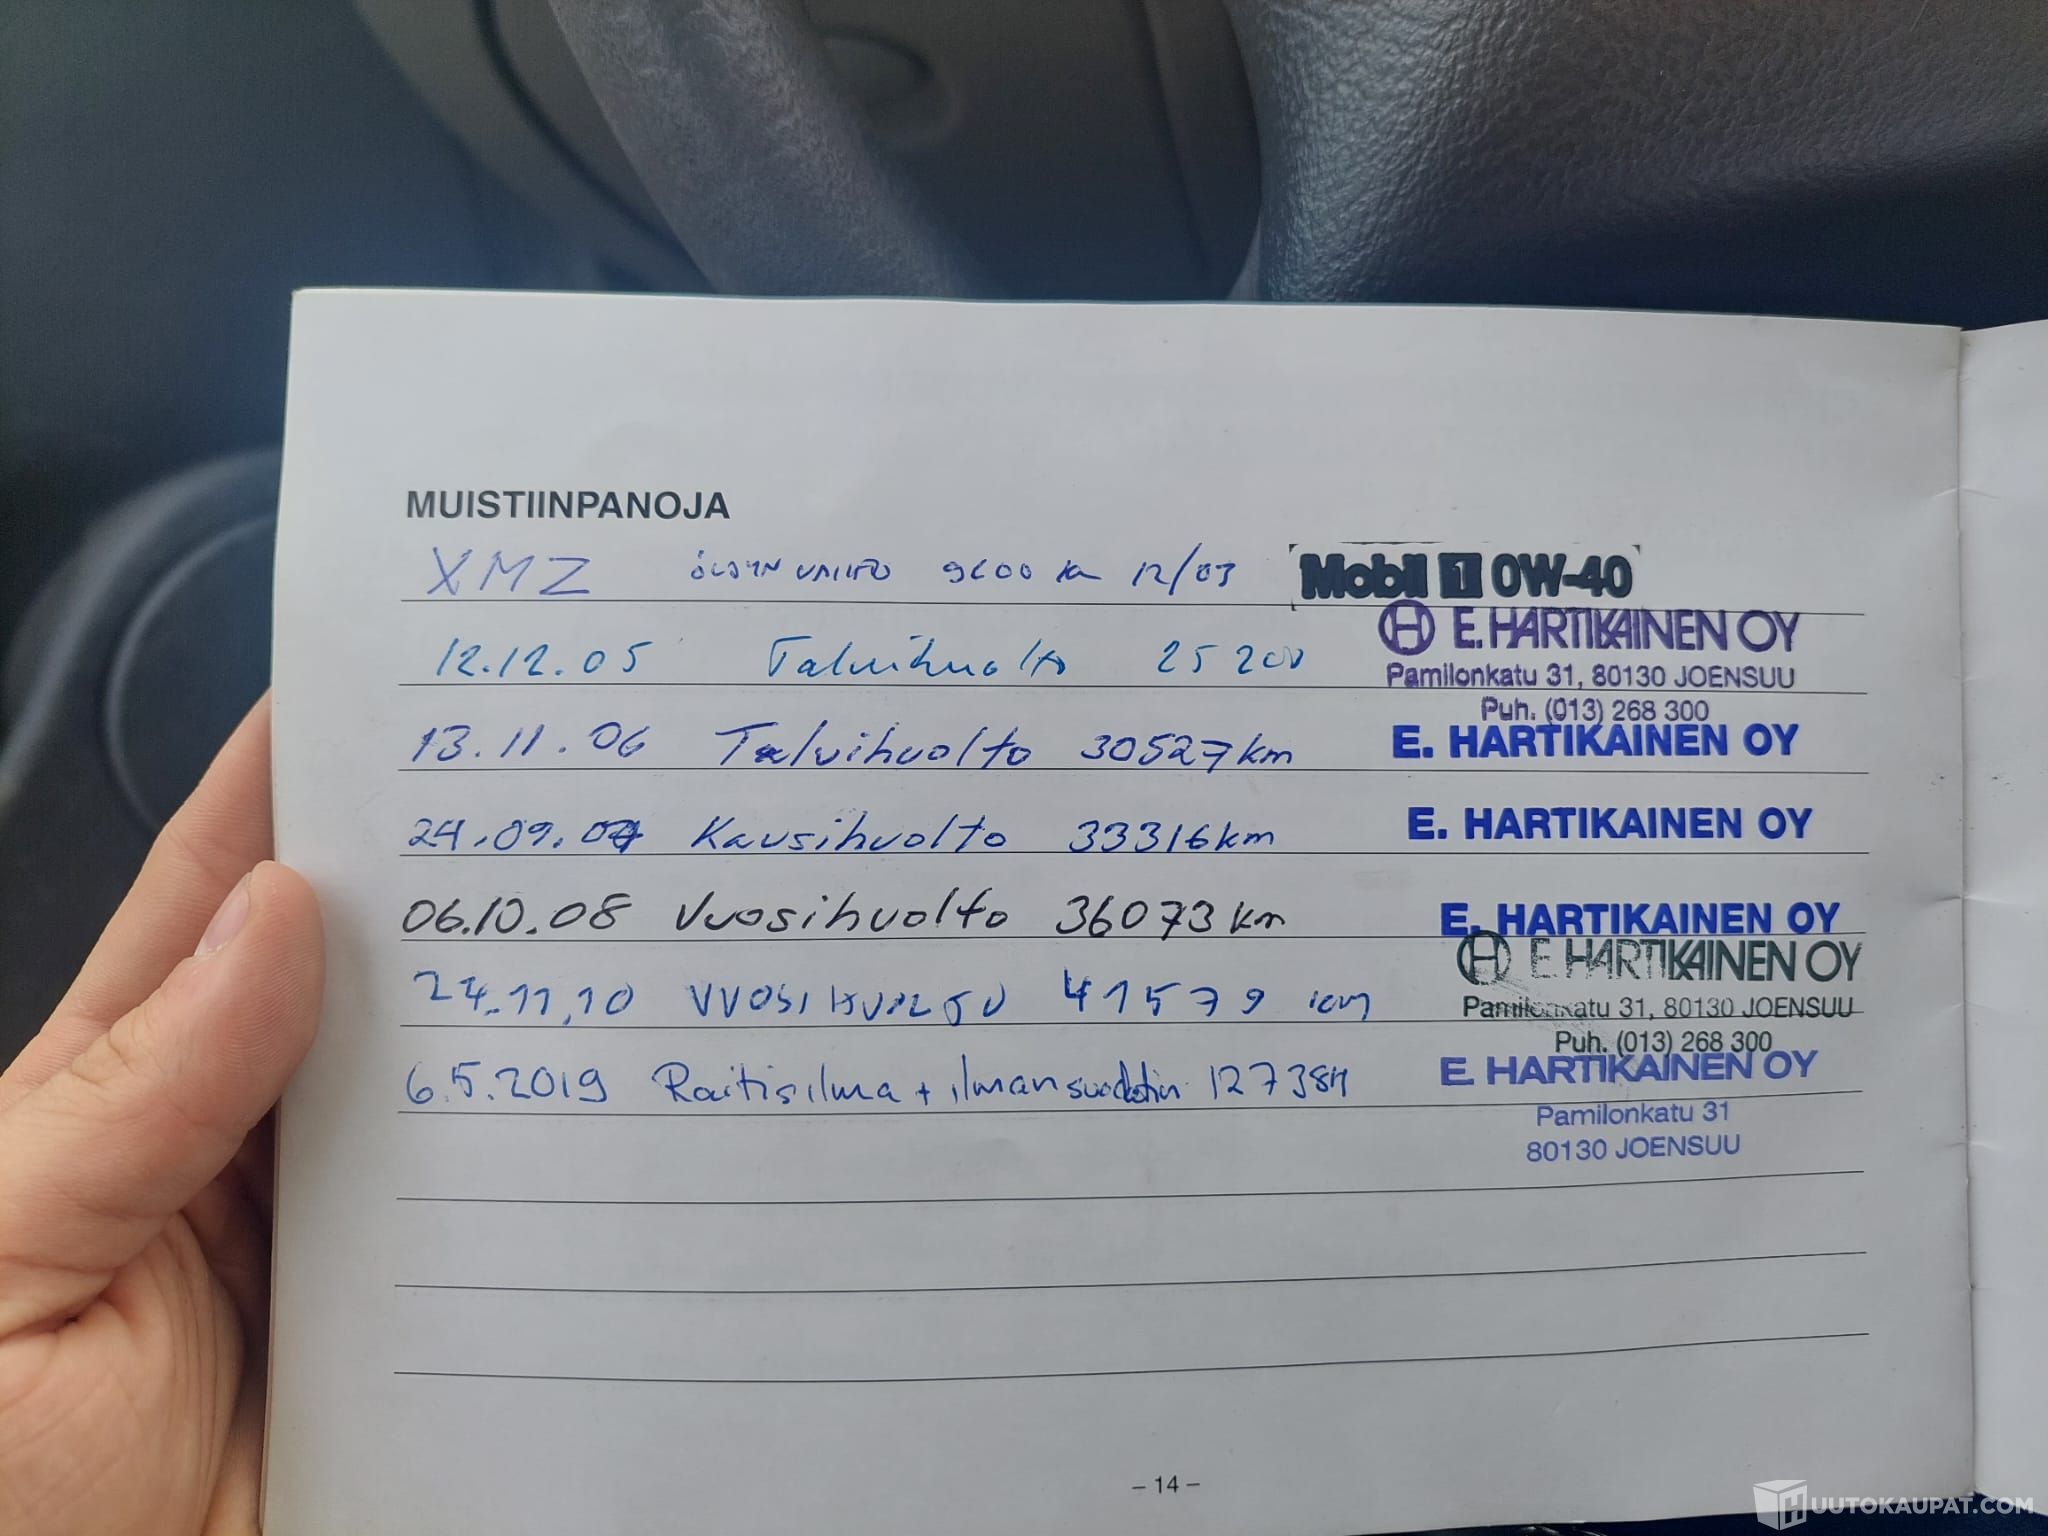 MUISTIINPANOJA
XMZ ÖLJYN VAIHTO 9600 km 12/03 Mobil 1 0W-40
E. HARTIKAINEN OY
12.12.05 Talvihuolto 25 200
Pamilonkatu 31, 80130 JOENSUU
Puh. (013) 268 300
13.11.06 Talvihuolto 30527km E. HARTIKAINEN OY
24.09.07 Kausihuolto 33316km E. HARTIKAINEN OY
06.10.08 Vuosihuolto 36073km E. HARTIKAINEN OY
H E. HARTIKAINEN OY
24.11.10 VUOSIHUOLTO 41579 km Pamilonkatu 31, 80130 JOENSUU
Puh. (013) 268 300
6.5.2019 Raitisilma + ilmansuodatin E. HARTIKAINEN OY
Pamilonkatu 31
80130 JOENSUU
– 14 –
HUUTOKAUPAT.COM